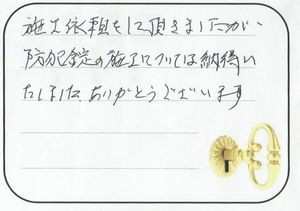 施工依頼をして頂きましたが、
防犯錠の施工については納得い
たしました、ありがとうございます